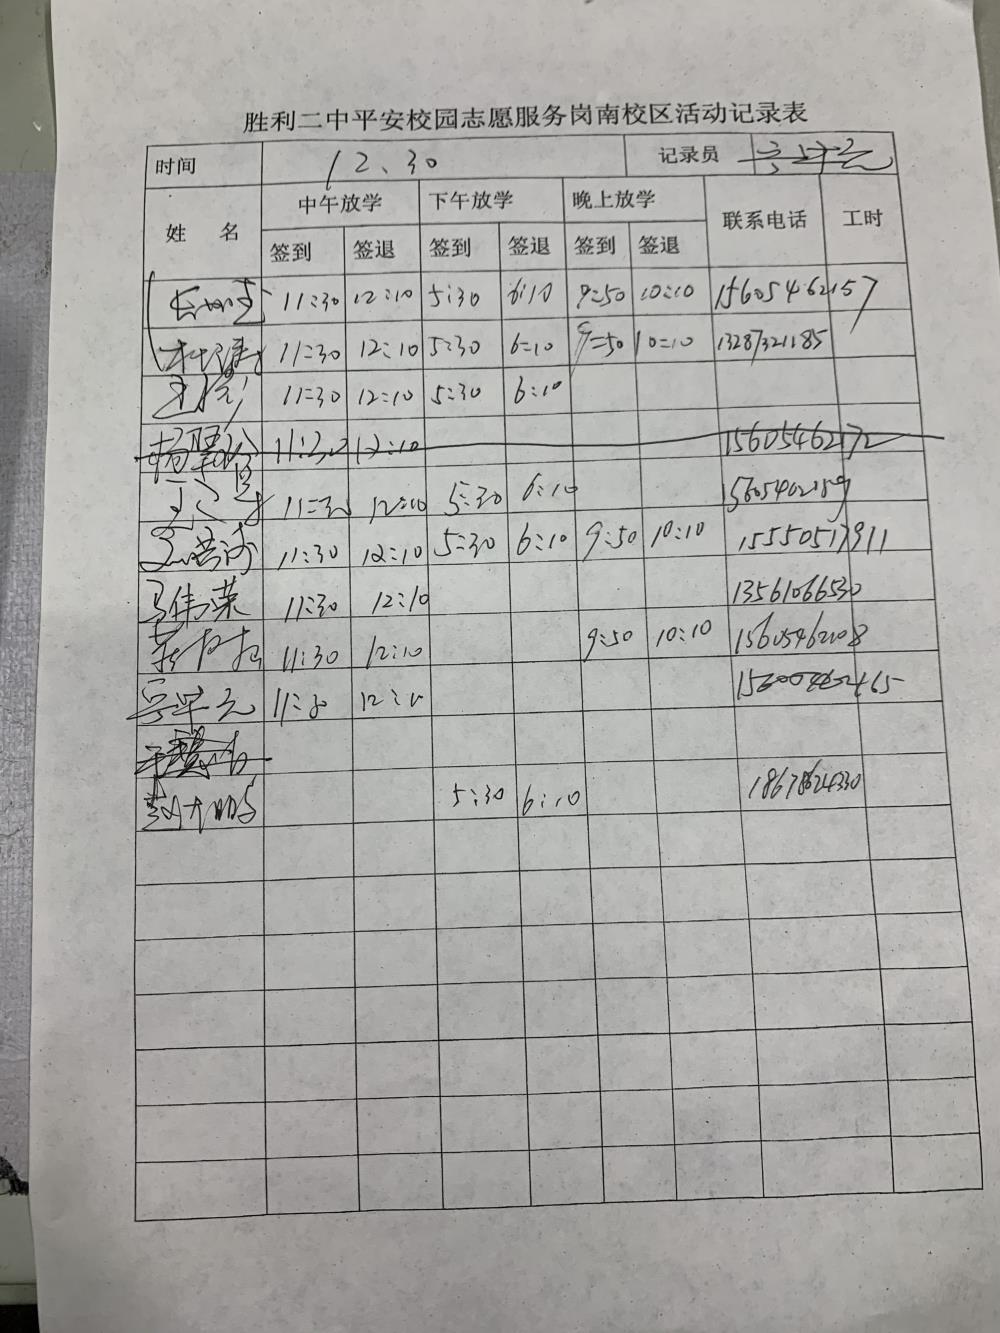 胜利二中平安校园志愿服务岗南校区活动记录表
时间 12、30 记录员
姓名 中午放学 下午放学 晚上放学 联系电话 工时
签到 签退 签到 签退 签到 签退
11:30 12:10 5:30 6:10 9:50 10:10 15605462157
11:30 12:10 5:30 6:10 9:50 10:10 13287321185
11:30 12:10 5:30 6:10
11:30 12:10 15605462172
11:30 12:10 5:30 6:10 15605462159
11:30 12:10 5:30 6:10 9:50 10:10 15550517911
马伟荣 11:30 12:10 13561066530
11:30 12:10 9:50 10:10 15605462108
12:10
5:30 6:10 18678624330